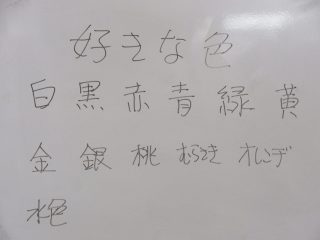 好きな色
白 黒 赤 青 緑 黄
金 銀 桃 むらさき オレンヂ
水色